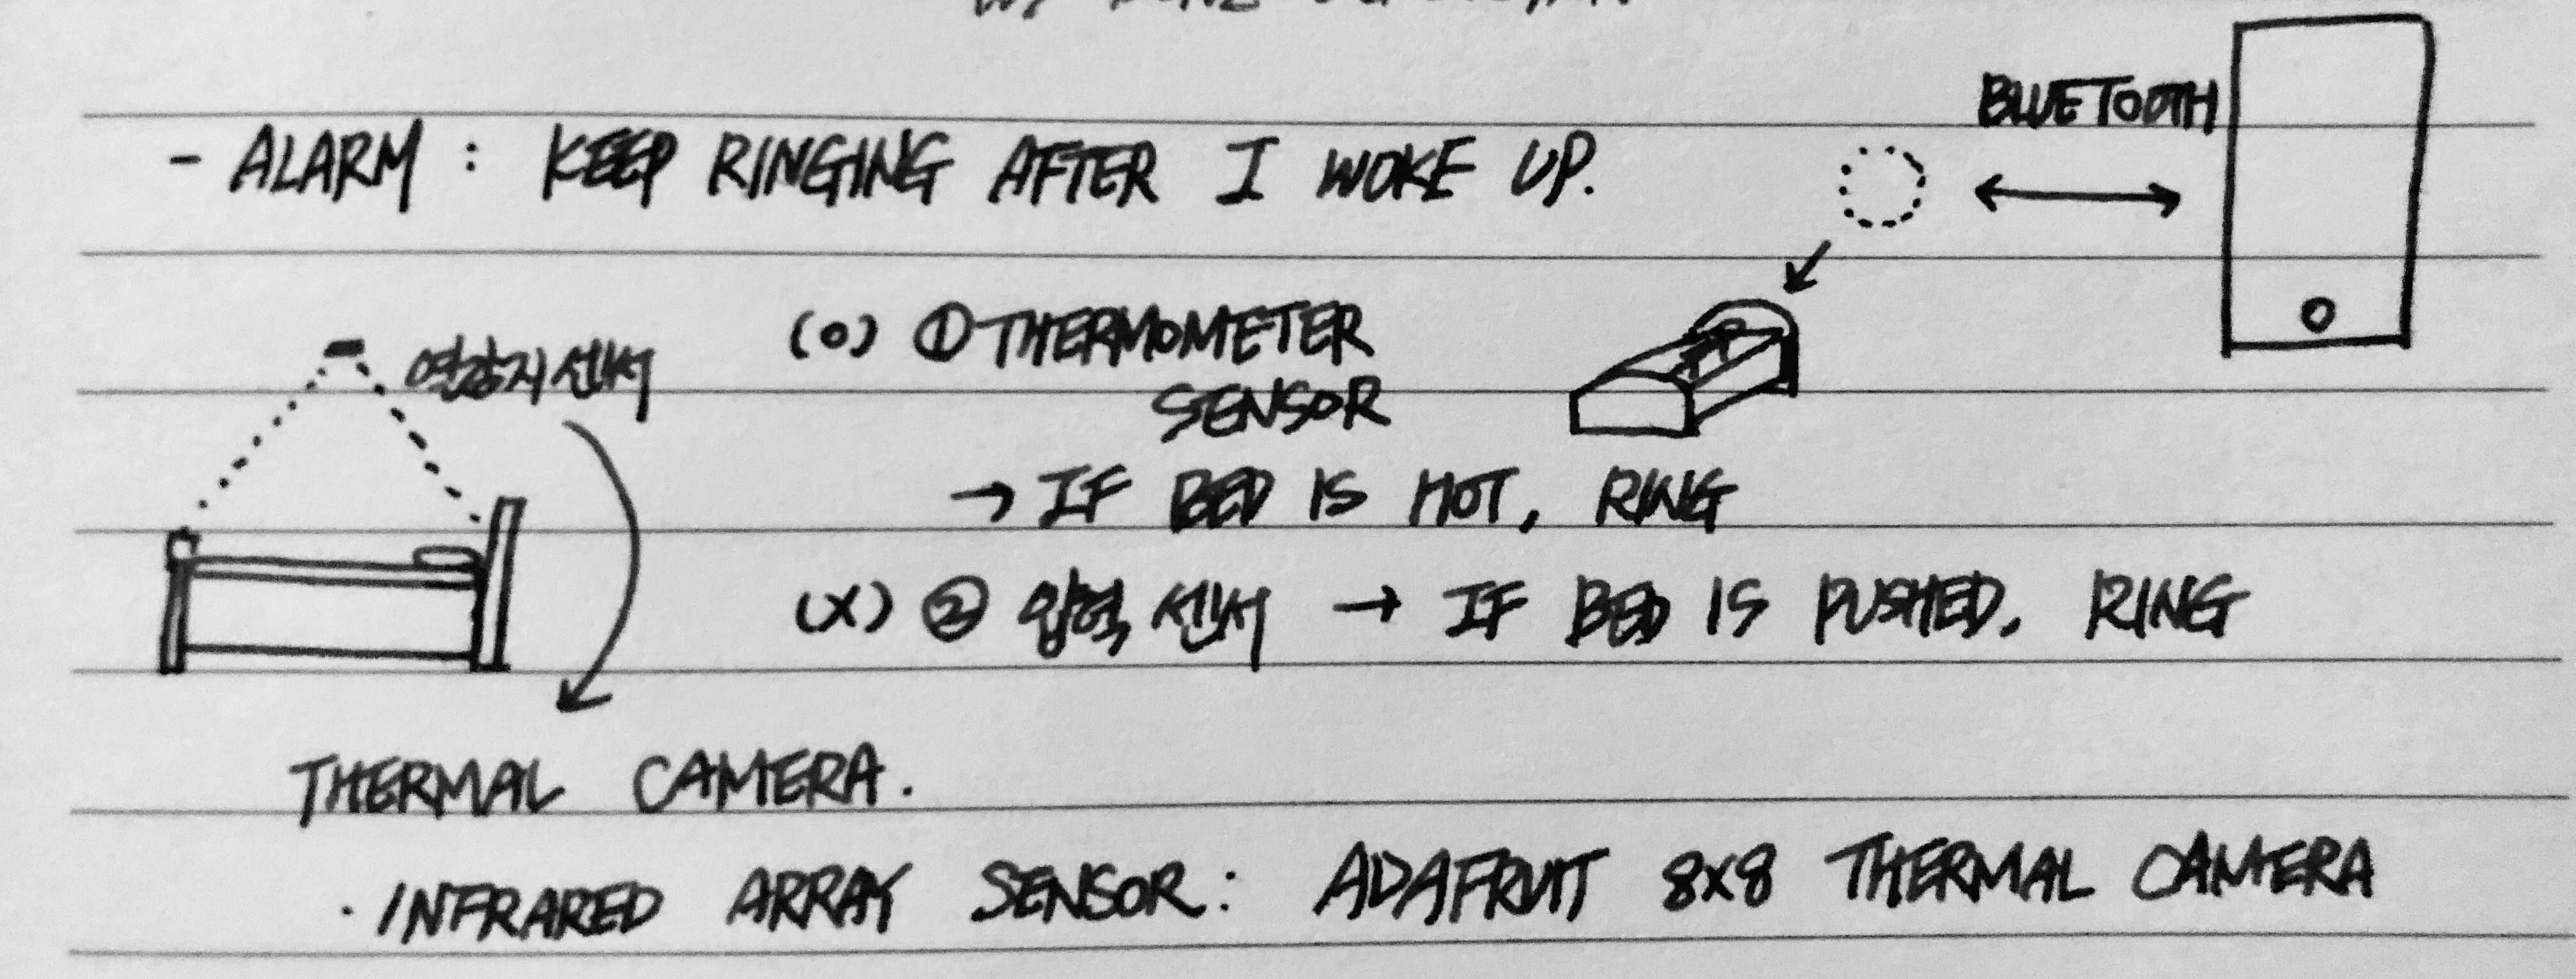 BLUETOOTH
- ALARM : KEEP RINGING AFTER I WOKE UP.
열감지 센서
(O) ① THERMOMETER
SENSOR
→ IF BED IS HOT, RING
(X) ② 압력 센서 → IF BED IS PUSHED. RING
THERMAL CAMERA.
· INFRARED ARRAY SENSOR : ADAFRUIT 8x8 THERMAL CAMERA